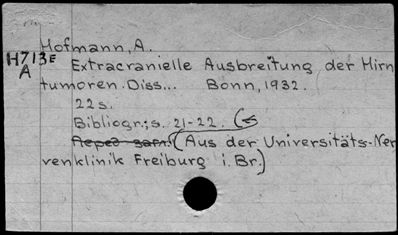 Hofmann, A.
H713E
A
Extracranielle Ausbreitung der Hirn
tumoren. Diss... Bonn, 1932.
22s.
Bibliogr.; s. 21-22.
(Aus der Universitäts-Ner
venklinik Freiburg i. Br.)